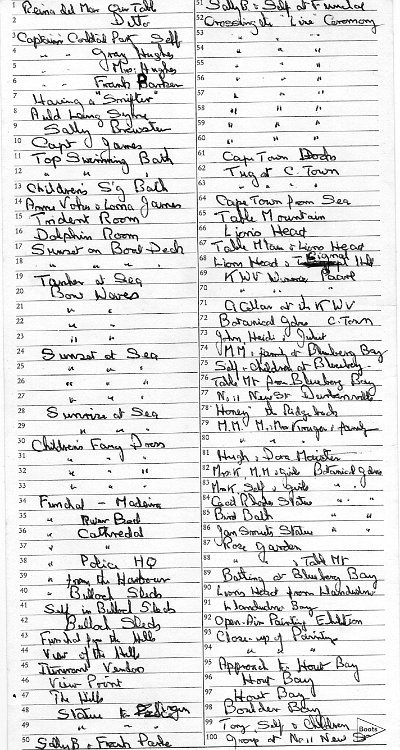 1 Reina del Mar Our Table
2 Ditto
3 Captain's Cocktail Party Self
4 " Gray Hughes
5 " Mrs. Hughes
6 " Frank
7 Having a "Snifter"
8 Auld Lang Syne
9 Sally Brewster
10 Capt James
11 Top Swimming Bath
12 " " "
13 Children's S'g Bath
14 Anne & Lorna James
15 Trident Room
16 Dolphin Room
17 Sunset on Boat Deck
18 " " "
19 Tanker at Sea
20 Bow Waves
21 " "
22 " "
23 " "
24 Sunset at Sea
25 " " "
26 " " "
27 " " "
28 Sunrise at Sea
29 " " "
30 Children's Fancy Dress
31 " "
32 " "
33 " "
34 Funchal - Madeira
35 " River Bed
36 " Cathredal
37 " "
38 " Police HQ
39 " from the Harbour
40 " Bullock Sleds
41 Self in Bullock Sleds
42 Bullock Sleds
43 Funchal from the Hills
44 View of the Hills
45 Itinerant Vendor
46 View Point
47 The Hills
48 Statue to
49 "
50 Sally B & Frank
51 Sally B & Self at Funchal
52 Crossing the "Line" Ceremony
53 " " "
54 " " "
55 " " "
56 " " "
57 " " "
58 " " "
59 " " "
60 " " "
61 Cape Town Docks
62 Tug at C. Town
63 " " "
64 Cape Town from Sea
65 Table Mountain
66 Lions Head
67 Table Mtain & Lions Head
68 Lions Head & Signal Hill
69 KWV Paarl
70 " " "
71 Cellar at the KWV
72 Botanical Gdns C. Town
73 John, Heidi & Juliet
74 M.M. & family at Bluebery Bay
75 Self & Children at Bluebery
76 Table Mt from Blueberg Bay
77 No. 11 New St Durbanville
78 "Honey"
79 M.M. M. Mrs Kruger & family
80 " "
81 Hugh & Dora
82 Mrs K. M.M & girls Botanical Gdns
83 Mrs K Self & girls " "
84 Cecil Rhodes Statue " "
85 Bird Bath " "
86 Jan Smuts Statue " "
87 Rose Garden
88 " " & Table Mt
89 Bathing at Blueberg Bay
90 Lions Head from Llandudno
91 Llandudno Bay
92 Open-Air Painting Exhibition
93 Close-up of Paintings
94 " " "
95 Approach to Hout Bay
96 Hout Bay
97 Hout Bay
98 Boulder Bay
99 Tony Self & Children
100 Group at No. 11 New St
Boots